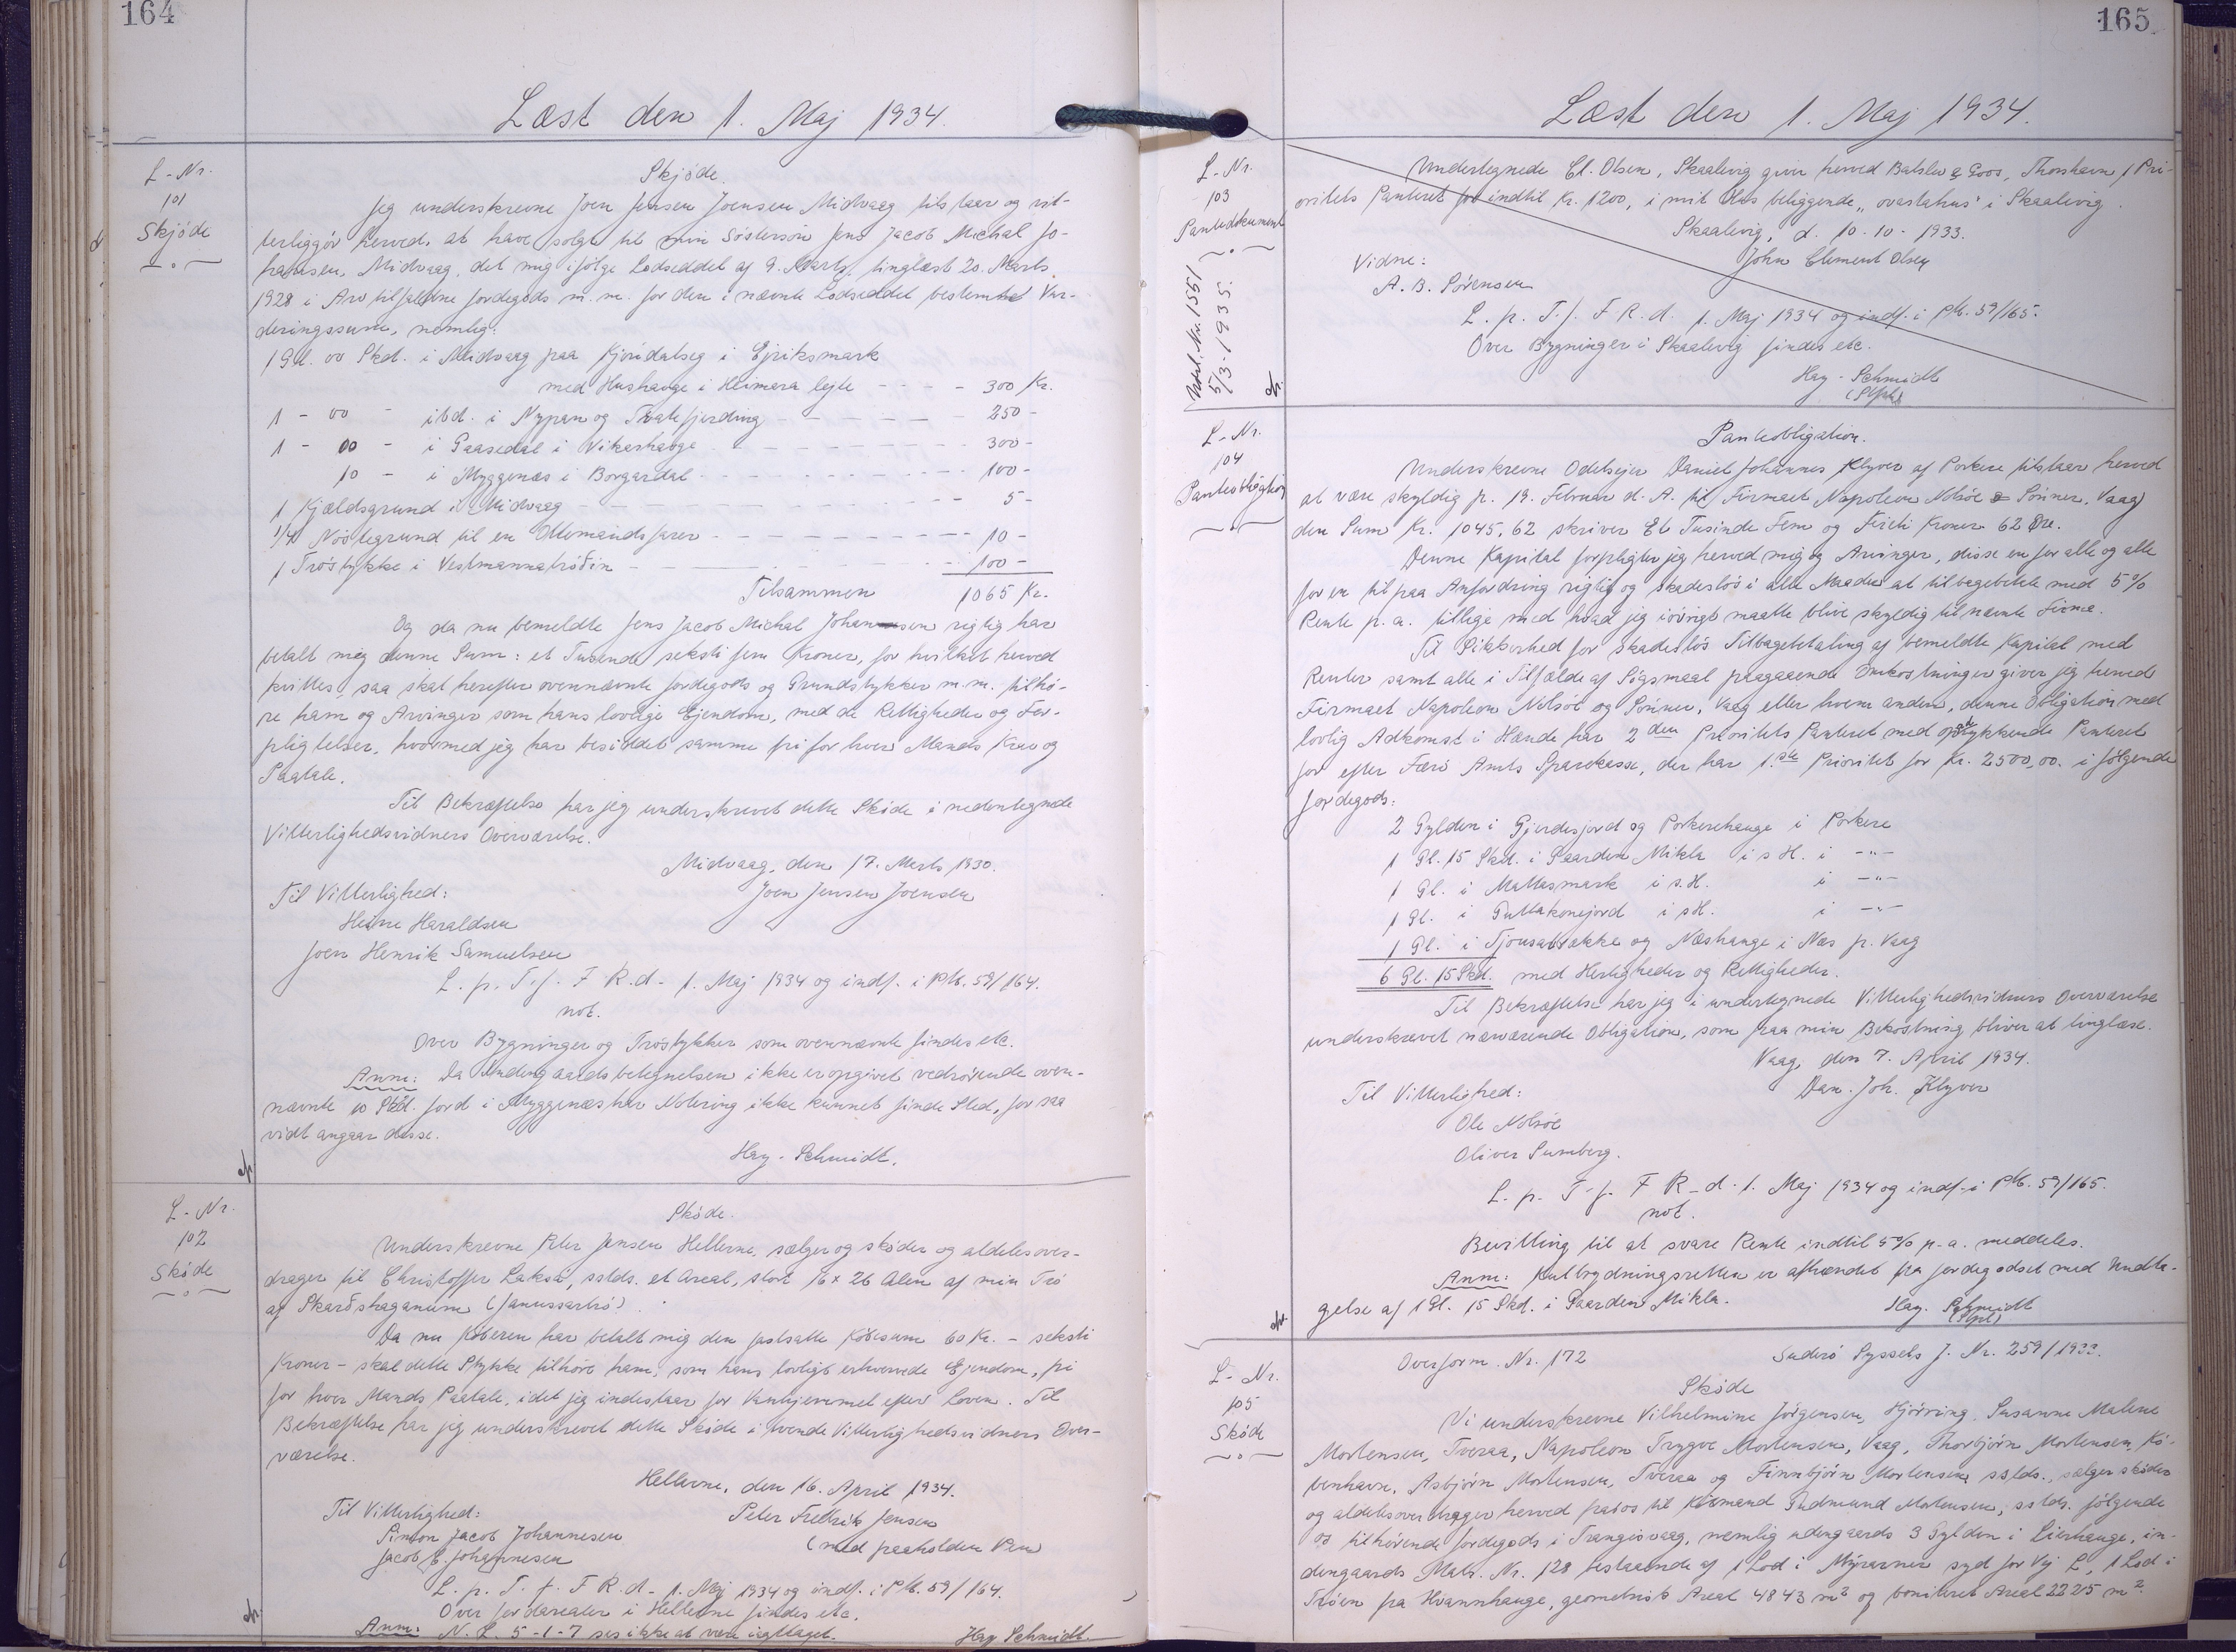 164
Læst den 1. Maj 1934.
L-Nr.
101
Skjöde
Skjöde.
Jeg underskrevne Joen Jensen Joensen Midvaag tilstaar og vit-
terliggör herved, at have solgt til min Søstersön Jens Jacob Michal Jo-
hansen, Midvaag, det mig ifölge Lodseddel af 9. Marts, tinglæst 20. Marts
1928 i Arv tilfaldne Jordegods m.m. for den i nævnte Lodseddel bestemte Vur-
deringssum, nemlig:
1 Gl. 00 Skd. i Midvaag paa Kjorídalseg i Ejriksmark
med Hushauge i Heimara lejte - - - - 300 Kr.
1 - 00 - ibd. i Nypan og Tvatlefjerding - - - - 250 -
1 - 00 - i Gaasedal i Vikarhauge - - - - 300 -
10 - i Myggenæs i Borgardal - - - - 100 -
1 Kjældsgrund i Midvaag - - - - 5 -
1/4 Nöstegrund til en Ottemandsfarer - - - - 10 -
1 Tröstykke i Vestmannatröðin - - - - 100 -
Tilsammen 1065 Kr.
Og da nu bemeldte Jens Jacob Michal Johansen rigtig har
betalt mig denne Sum: et Tusende seksti fem Kroner, for hvilket herved
kvittes, saa skal herefter ovennævnte Jordegods og Grundstykker m.m. tilhö-
re ham og Arvinger som hans lovlige Ejendom, med de Rettigheder og For-
pligtelser, hvormed jeg har besiddet samme fri for hver Mands Krav og
Paatale.
Til Bekræftelse har jeg underskrevet dette Sköde i nedentegnede
Vitterlighedsvidners Overværelse.
Midvaag, den 17. Marts 1930.
Til Vitterlighed: Joen Jensen Joensen
Heine Haraldsen
Joen Henrik Samuelsen
L. p. T. f. F R. d. 1. Maj 1934 og indf. i PM. 59/164.
not.
Over Bygninger og Tröstykker som ovennævnte findes etc.
Anm: Da Undengaardsbetegnelsen ikke er opgivet vedrörende oven-
nævnte 10 Skd. Jord i Myggenæs har Notering ikke kunnet finde Sted, for saa
vidt angaar disse.
Hay-Schmidt.
L-Nr.
102
Sköde
Sköde.
Underskrevne Peter Jensen Hellerne, sælger og sköder og aldeles over-
drager til Christoffer Laksá, sstds. et Areal, stort 16 x 26 Alen af min Trö
af Skarðshaganum (Janussartrö).
Da nu Köberen har betalt mig den fastsatte Kōbesum 60 Kr. - seksti
Kroner - skal dette Stykke tilhöre ham, som hans lovligt erhvervede Ejendom, fri
for hver Mands Paatale, idet jeg indestaar for Vanhjemmel efter Loven. Til
Bekræftelse har jeg underskrevet dette Sköde i tvende Vitterlighedsvidners Over-
værelse.
Hellerne, den 16. April 1934.
Til Vitterlighed: Peter Fredrik Jensen
Simon Jacob Johannesen (med paaholden Pen)
Jacob E. Johannesen
L. p. T. f. F R. d. 1. Maj 1934 og indf. i PM. 59/164.
Over Jordarealer i Hellerne findes etc.
Anm: N. L. 5-1-7 ses ikke at være iagttaget. Hay Schmidt.
165
Læst den 1. Maj 1934.
L-Nr.
103
Pantedokument
Udsl. Nr. 1551
5/3-1935.
Undertegnede Cl. Olsen, Skaalevig giver herved Balslev & Goos, Thorshavn 1 Pri-
oritets Panteret for indtil Kr. 1200, i mit Hus beliggende "ovastahus" i Skaalevig.
Skaalevig, d. 10-10-1933.
Vidne: John Clement Olsen
A. B. Sörensen
L. p. T. f. F R. d. 1. Maj 1934 og indf. i PM. 59/165.
Over Bygninger i Skaalevig findes etc.
Hay-Schmidt
L-Nr.
104
Panteobligation
Panteobligation.
Underskrevne Odelsejer Daniel Johannes Klyver af Porkere tilstaar herved
at være skyldig p. 19. Februar d. A. til Firmaet Napoleon Nolsöe & Sönner, Vaag
den Sum Kr. 1045,62 skriver Et Tusinde Fem og Firti Kroner 62 Øre.
Denne Kapital forpligter jeg herved mig og Arvinger, disse en for alle og alle
for en til paa Anfordring rigtig og skadeslös i alle Maader at tilbagebetale med 5%
Rente p. a. tillige med hvad jeg iövrigt maatte blive skyldig til nævnte Firma.
Til Sikkerhed for skadeslös Tilbagebetaling af bemeldte Kapital med
Renter samt alle i Tilfælde af Sögsmaal paagaaende Omkostninger giver jeg herved
Firmaet Napoleon Nolsöe og Sönner, Vaag eller hvem anden, denne Obligation med
lovlig Adkomst i Hænde har 2den Prioritets Panteret med oprykkende Panteret
for efter Færö Amts Sparekasse, der har 1.ste Prioritet for Kr. 2500,00. i fölgende
Jordegods:
2 Gylden i Gjerdesjord og Porkerehauge i Porkere
1 Gl. 15 Skd. i Gaarden Mikla i s.H. i -"-
1 Gl. i Mattasmark i s.H. i -"-
1 Gl. i Guttakonejord i s.H. i -"-
1 Gl. i Tjousabrække og Næshauge i Næs p. Vaag
6 Gl. 15 Skd. med Herligheder og Rettigheder.
Til Bekræftelse har jeg i undertegnede Vitterlighedsvidners Overværelse
underskrevet nærværende Obligation, som paa min Bekostning bliver at tinglæse.
Vaag, den 7. April 1934.
Til Vitterlighed: Dan. Joh. Klyver
Ole Nolsöe
Oliver Sumberg.
L. p. T. f. F R. d. 1. Maj 1934 og indf. i PM. 59/165.
not.
Bevilling til at svare Rente indtil 5% p.a. meddeles.
Anm: Kulbrydningsretten er afhændet fra Jordegodset med Undta-
gelse af 1 Gl. 15 Skd. i Gaarden Mikla. Hay. Schmidt
L-Nr.
105
Sköde
Overform. Nr. 172 Suderö Syssels J. Nr. 259/1933.
Sköde
Vi underskrevne Vilhelmine Jörgensen, Hjörring, Susanne Malene
Mortensen, Tveraa, Napoleon Trygve Mortensen, Vaag, Thorbjörn Mortensen, Kö-
benhavn, Asbjörn Mortensen, Tveraa og Finnbjörn Mortensen, sstds., sælger sköder
og aldeles overdrager herved fra os til Kömand Gudmund Mortensen, sstds. fölgende
os tilhörende Jordegods i Trangisvaag, nemlig udengaards 3 Gylden i Lierhauge, in-
dengaards Matr. Nr. 128 bestaaende af 1 Lod i Mýrarner syd for Vej L, 1 Lod i
Tröen fra Hvannhauge, geometrisk Areal 4843 m² og boniteret Areal 2225 m².